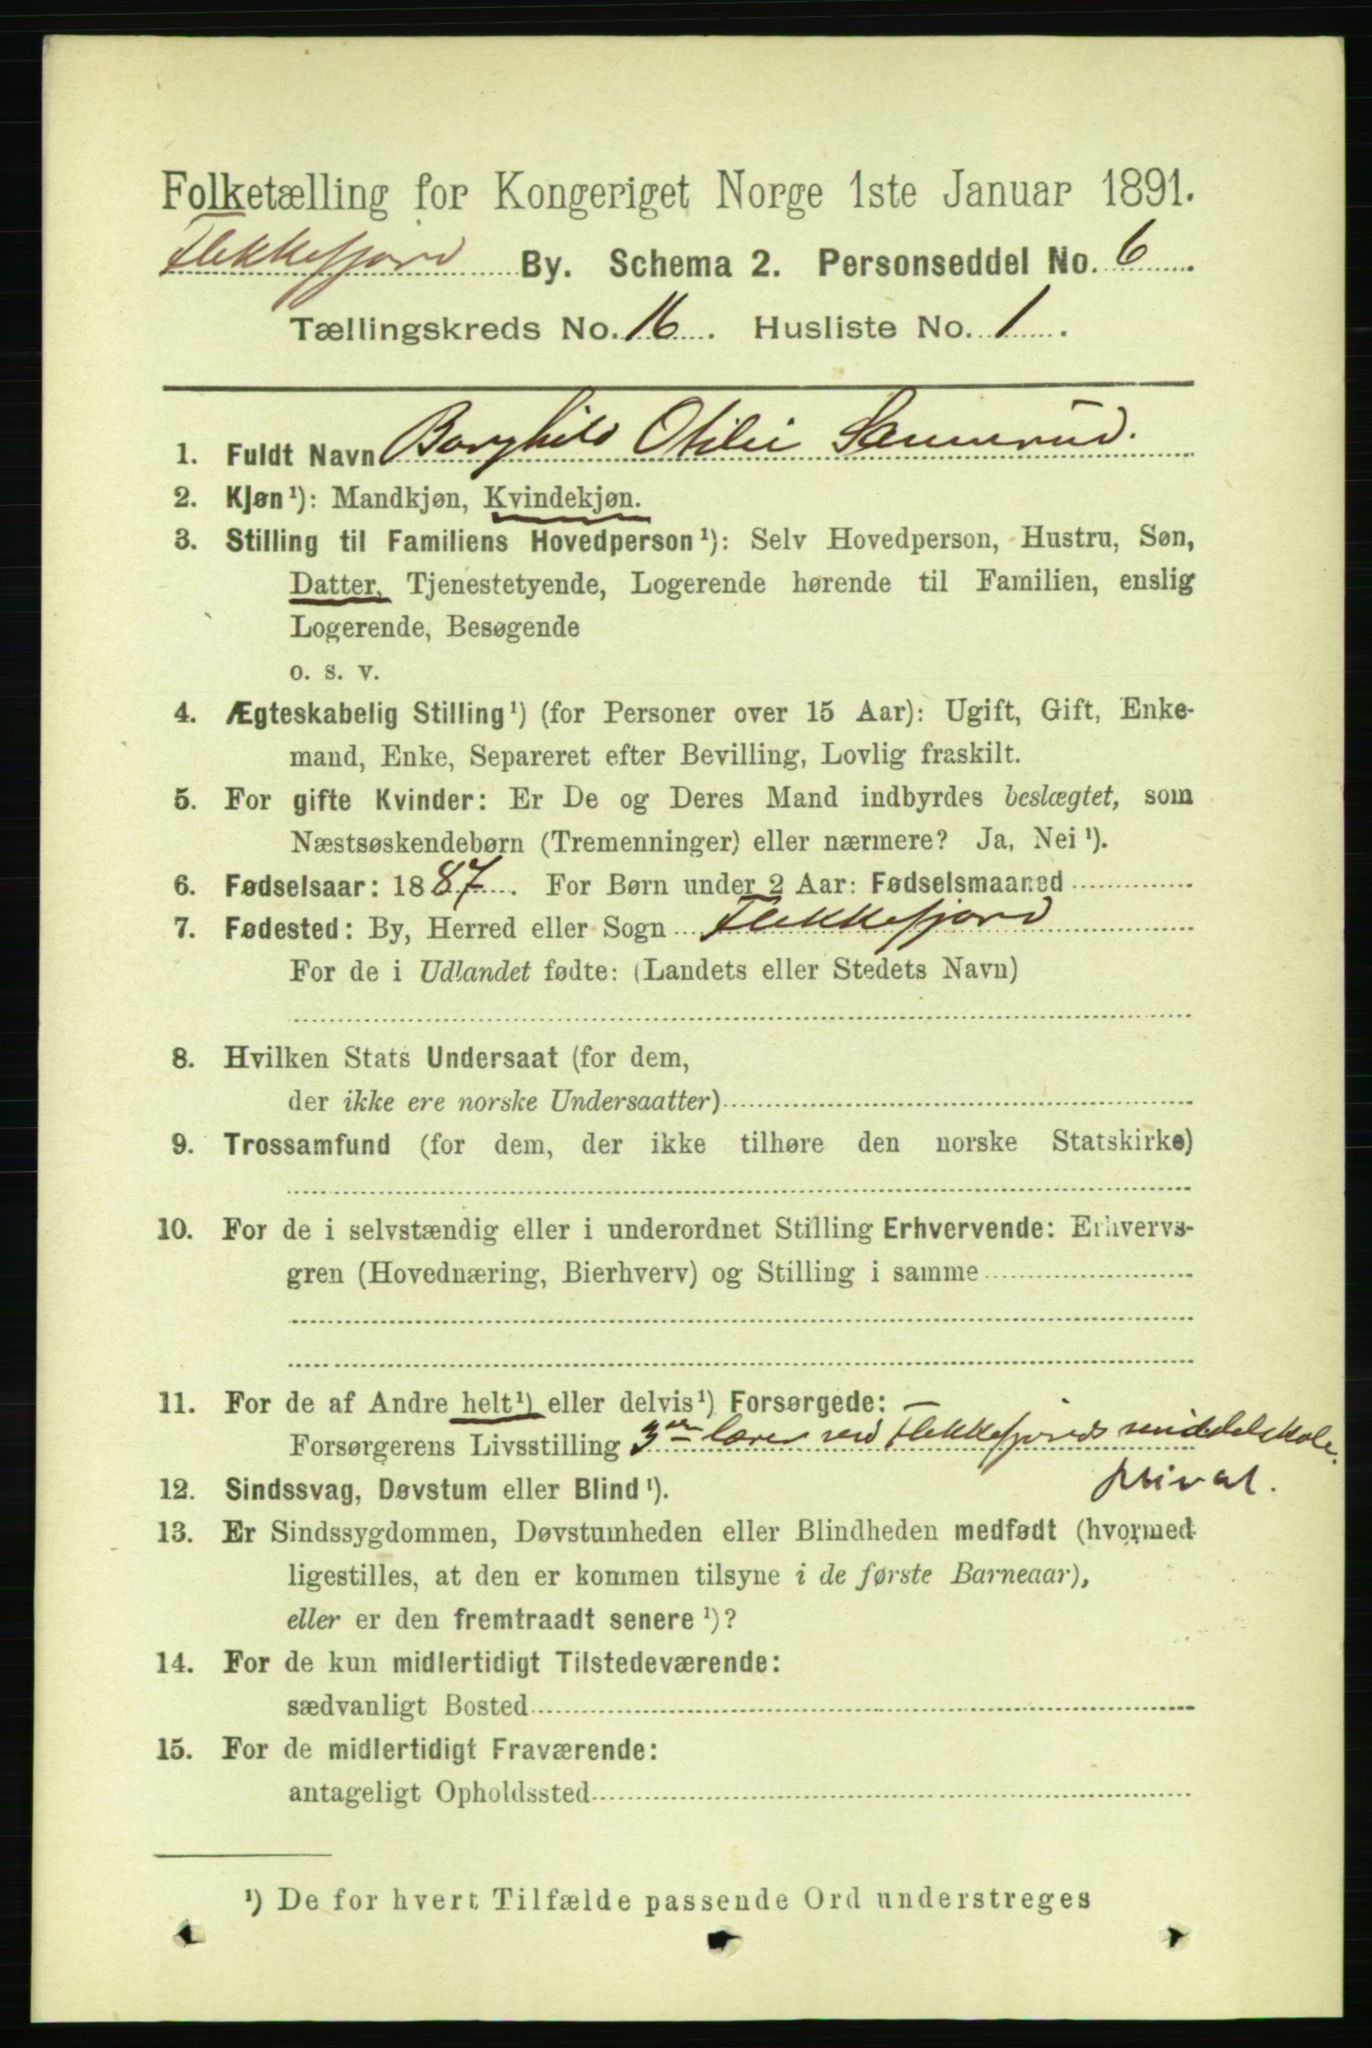 Folketælling for Kongeriget Norge 1ste Januar 1891.
Flekkefjord By. Schema 2. Personseddel No. 6
Tællingskreds No. 16. Husliste No. 1.
1. Fuldt Navn Borghild Otilie Sannerud.
2. Kjøn¹): Mandkjøn, Kvindekjøn.
3. Stilling til Familiens Hovedperson¹): Selv Hovedperson, Hustru, Søn,
Datter, Tjenestetyende, Logerende hørende til Familien, enslig
Logerende, Besøgende
o. s. v.
4. Ægteskabelig Stilling¹) (for Personer over 15 Aar): Ugift, Gift, Enke-
mand, Enke, Separeret efter Bevilling, Lovlig fraskilt.
5. For gifte Kvinder: Er De og Deres Mand indbyrdes beslægtet, som
Næstsøskendebørn (Tremenninger) eller nærmere? Ja, Nei¹).
6. Fødselsaar: 1887. For Børn under 2 Aar: Fødselsmaaned
7. Fødested: By, Herred eller Sogn Flekkefjord
For de i Udlandet fødte: (Landets eller Stedets Navn)
8. Hvilken Stats Undersaat (for dem,
der ikke ere norske Undersaatter)
9. Trossamfund (for dem, der ikke tilhøre den norske Statskirke)
10. For de i selvstændig eller i underordnet Stilling Erhvervende: Erhvervs-
gren (Hovednæring, Bierhverv) og Stilling i samme
11. For de af Andre helt¹) eller delvis¹) Forsørgede:
Forsørgerens Livsstilling 3die lærer ved Flekkefjords middelskole.
privat.
12. Sindssvag, Døvstum eller Blind¹).
13. Er Sindssygdommen, Døvstumheden eller Blindheden medfødt (hvormed
ligestilles, at den er kommen tilsyne i de første Barneaar),
eller er den fremtraadt senere¹)?
14. For de kun midlertidigt Tilstedeværende:
sædvanligt Bosted
15. For de midlertidigt Fraværende:
antageligt Opholdssted
¹) De for hvert Tilfælde passende Ord understreges